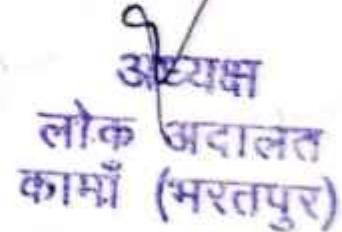 अध्यक्ष
लोक अदालत
कामाँ (भरतपुर)